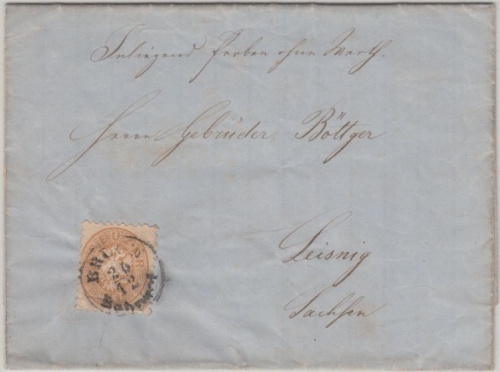 Inliegend Proben ohne Werth.
Herrn Gebrüder Böttger
Leisnig
Sachsen
26
12
Bahnhof